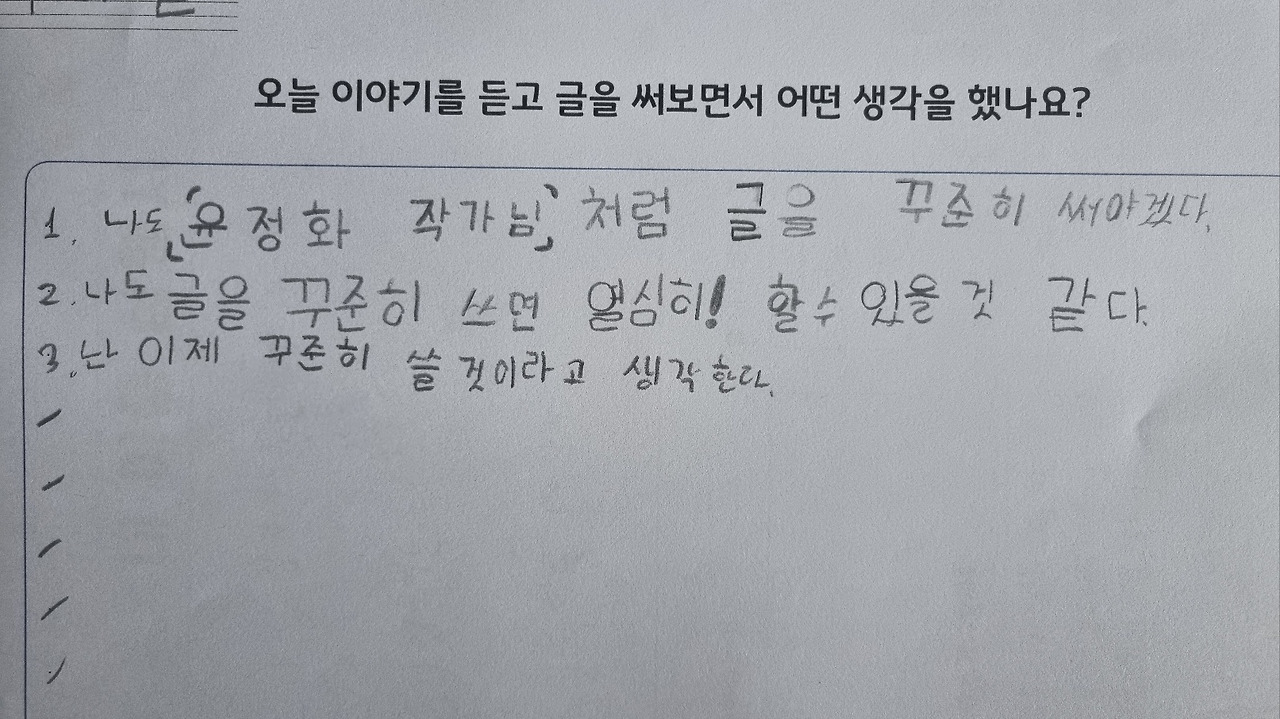 오늘 이야기를 듣고 글을 써보면서 어떤 생각을 했나요?
1. 나도 「윤정화 작가님」 처럼 글을 꾸준히 써야겠다.
2. 나도 글을 꾸준히 쓰면 열심히! 할수 있을 것 같다.
3. 난 이제 꾸준히 쓸 것이라고 생각한다.